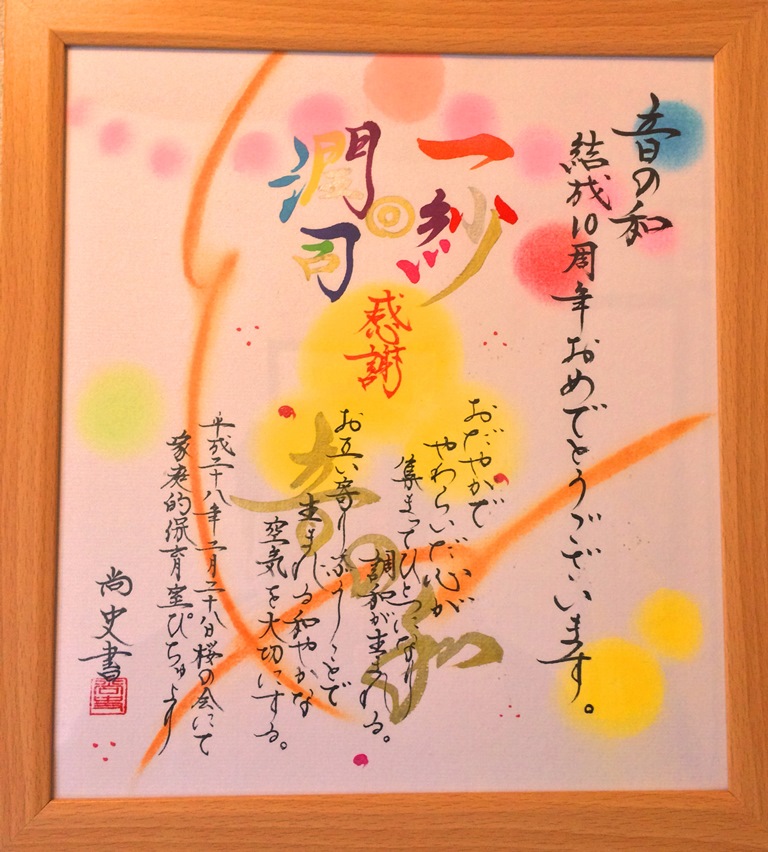 音の和
結成10周年おめでとうございます。
一紗
潤司
感謝
音の和
おだやかで
やわらいだ心が
集まってひとつになり
調和が生まれる。
お互い寄り添うことで
生まれる和やかな
空気を大切にする。
平成二十八年二月二十八日桜の会にて
家庭的保育室ぴちゅより
尚史書